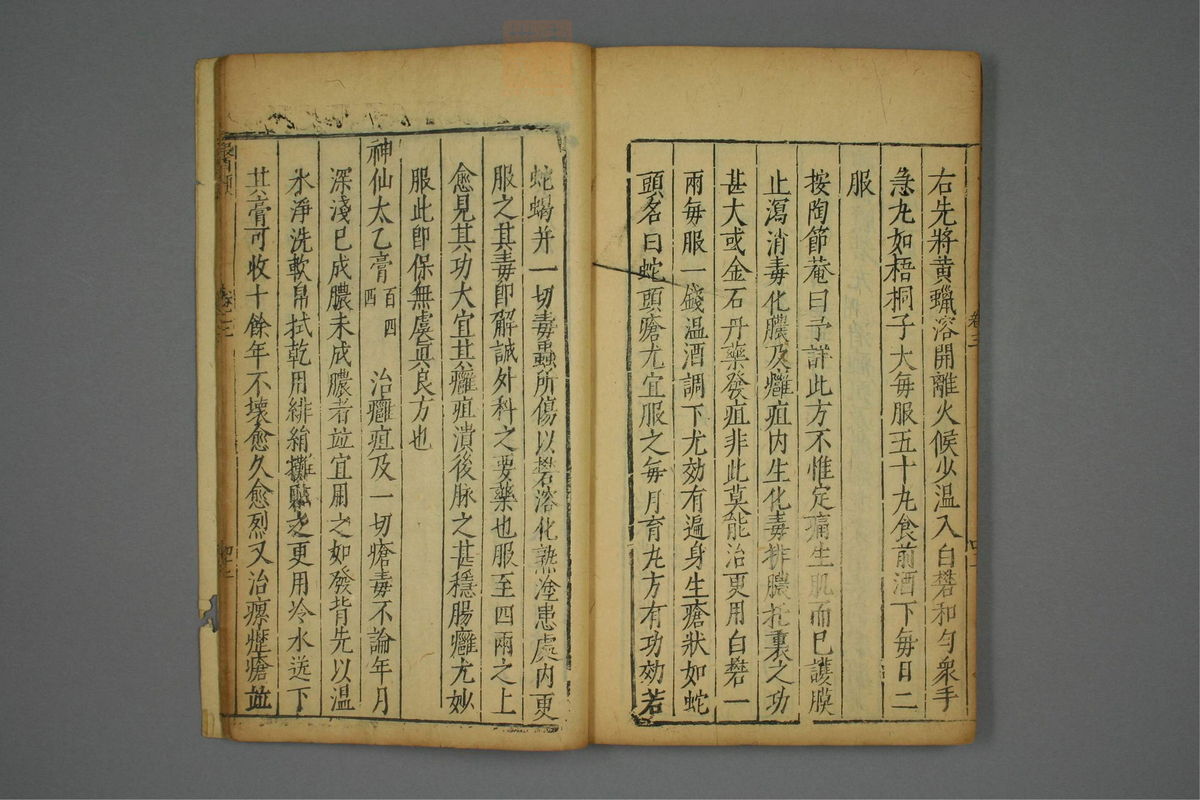 右先將黄蠟溶開離火候少温入白礬和勻衆手
急丸如梧桐子大毎服五十丸食前酒下毎日二
服
按陶節菴曰予詳此方不惟定痛生肌而已護膜
止瀉消毒化膿及癰疽内生化毒排膿托裏之功
甚大或金石丹藥發疽非此莫能治更用白礬一
兩毎服一錢温酒調下尤効有遍身生瘡狀如蛇
頭名曰蛇頭瘡尤宜服之毎月育丸方有功効若
蛇蝎并一切毒蟲所傷以礬溶化熱塗患處内更
服之其毒即解誠外科之要藥也服至四兩之上
愈見其功大宜其癰疽潰後服之甚穩腸癰尤妙
服此即保無虞眞良方也
神仙太乙膏 百四四 治癰疽及一切瘡毒不論年月
深淺已成膿未成膿者並宜用之如發背先以温
水淨洗軟帛拭乾用緋絹攤貼之更用冷水送下
其膏可收十餘年不壞愈久愈烈又治瘰癧瘡並
卷三